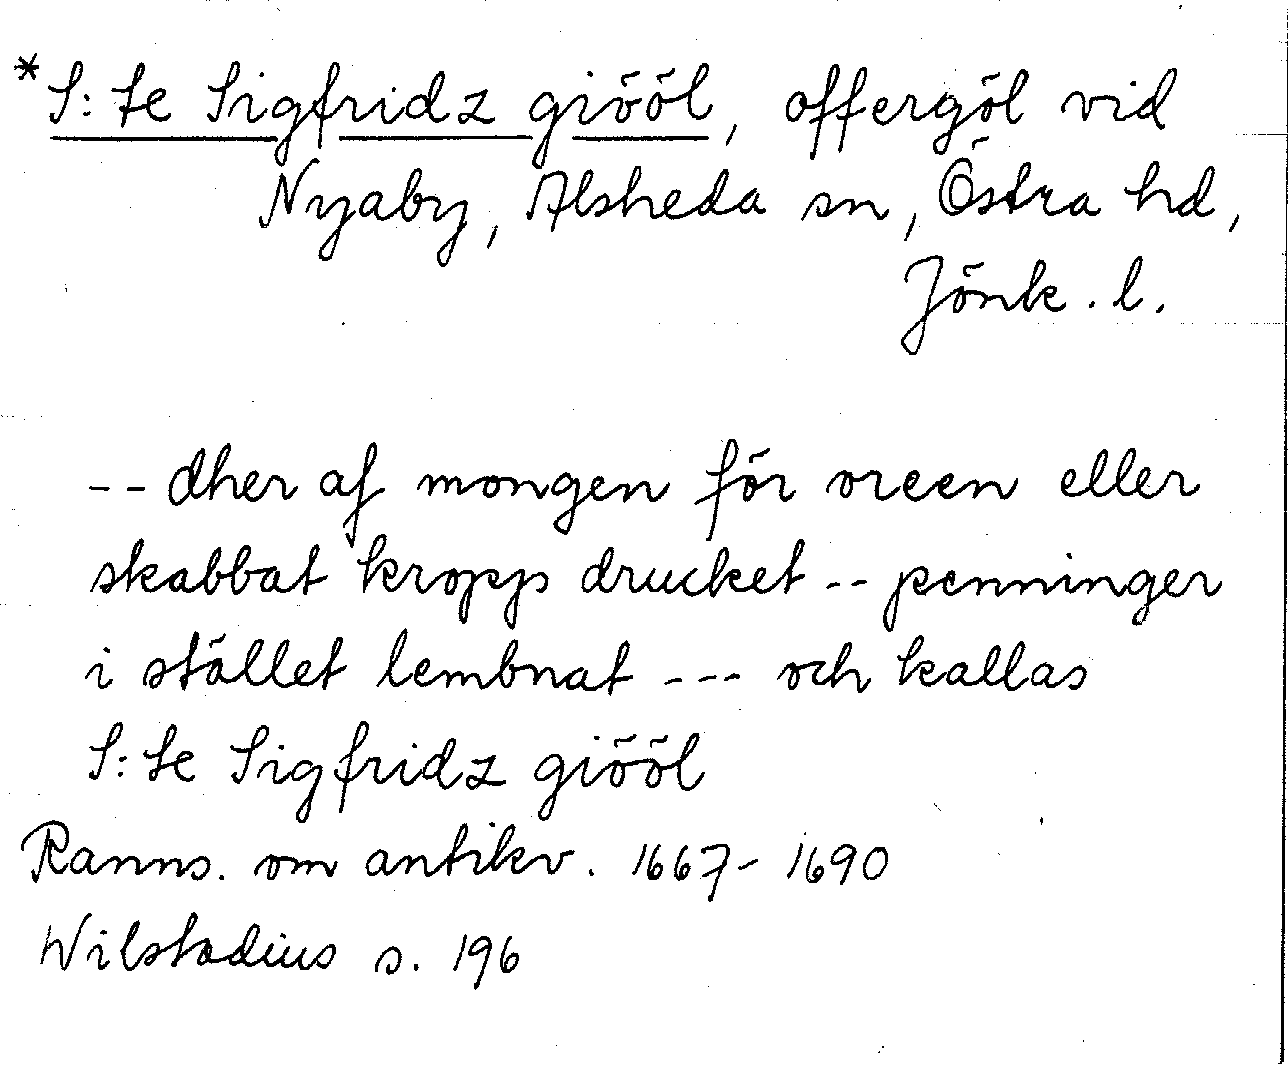 *S:te Sigfridz giööl, offergöl vid
Nyaby, Alsheda sn, Östra hd,
Jönk. l.
-- dher af mongen för oreen eller
skabbat kropp drucket -- penninger
i stället lembnat --- och kallas
S:te Sigfridz giööl
Ranns. om antikv. 1667-1690
Wilstadius s. 196